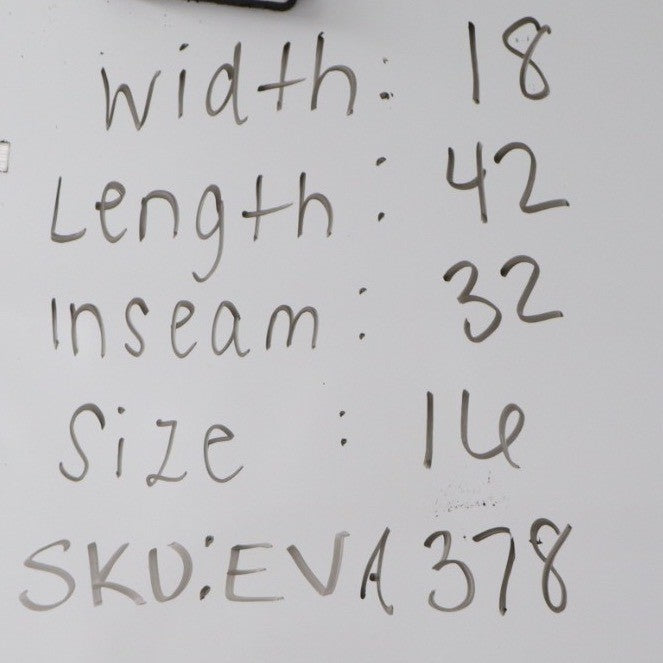 Width: 18
Length: 42
Inseam: 32
Size : 16
SKU: EVA 378